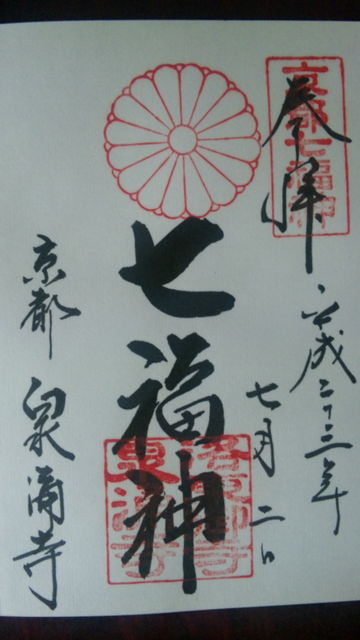 奉拝
京都七福神
平成二十三年
七月二日
七福神
泉涌寺
京都 泉涌寺